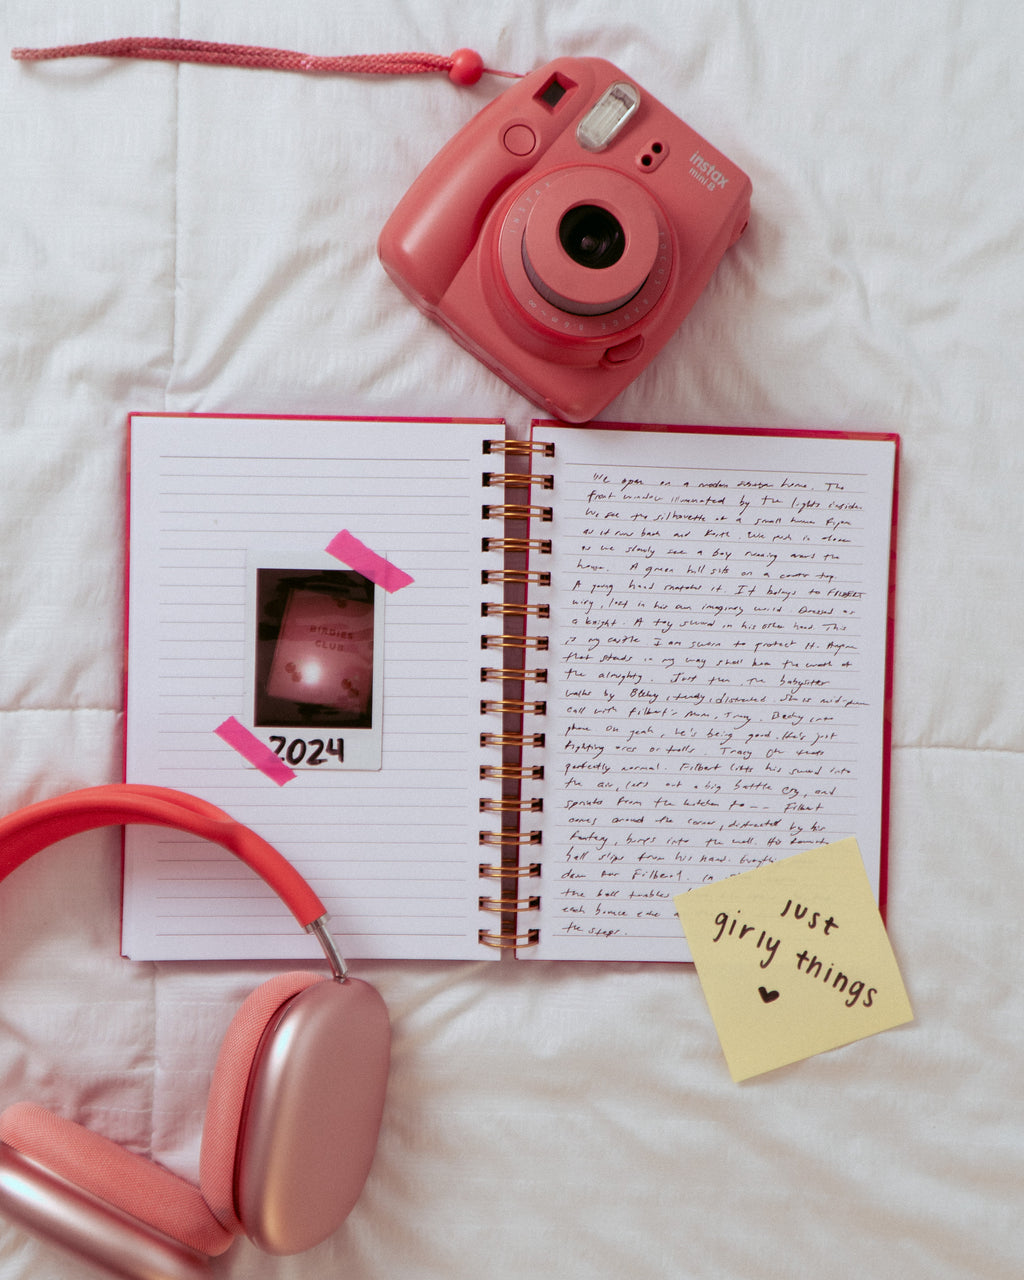 instax
mini 8
INSTAX
FOCUS RANGE
0.6m ~ ∞
We open on a modern home. The
front window illuminated by the lights inside.
We see the silhouette of a small human figure
as it runs back and forth. We push in closer
as we slowly see a boy running around the
house. A green ball sits on a counter top.
A young hand snatches it. It belongs to FILBERT
, lost in his own imaginary world. Dressed as
a knight. A toy sword in his other hand. This
is my castle I am sworn to protect it. Anyone
that stands in my way shall the wrath of
the almighty. Just then, the babysitter
walks by Becky, , distracted. She is mid-phone
call with Filbert's Mom, Tracy. Becky into
phone Oh yeah, he's being good. He's just
fighting orcs or trolls. Tracy Oh thats
perfectly normal. Filbert lifts his sword into
the air, lets out a big battle cry, and
sprints from the kitchen to -- Filbert
comes around the corner, distracted by his
fantasy, bumps into the wall. His
ball slips from his hand. Everything
down for Filbert. In
the ball tumbles
each bounce
the steps.
BIRDIES
CLUB
2024
Just
girly things